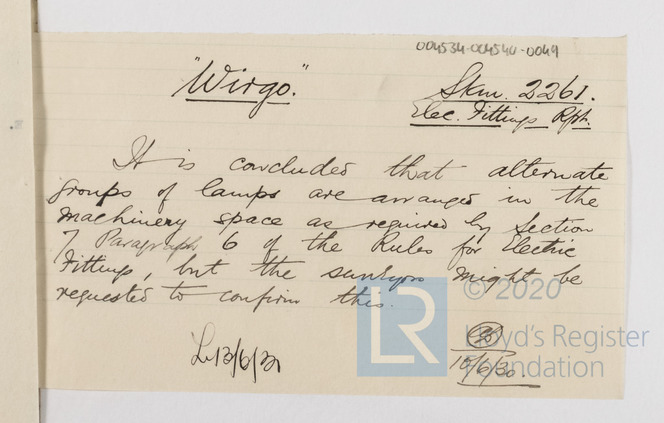 004534-004544-0049
"Wirgo."
Skm. 2261.
Elec. Fittings Rpt.
It is concluded that alternate
groups of lamps are arranged in the
machinery space as required by Section
7 Paragraph 6 of the Rules for Electric
Fittings, but the surveyors might be
requested to confirm this.
LR
© 2020
Lloyd's Register
Foundation
13/6/30
10/6/30.